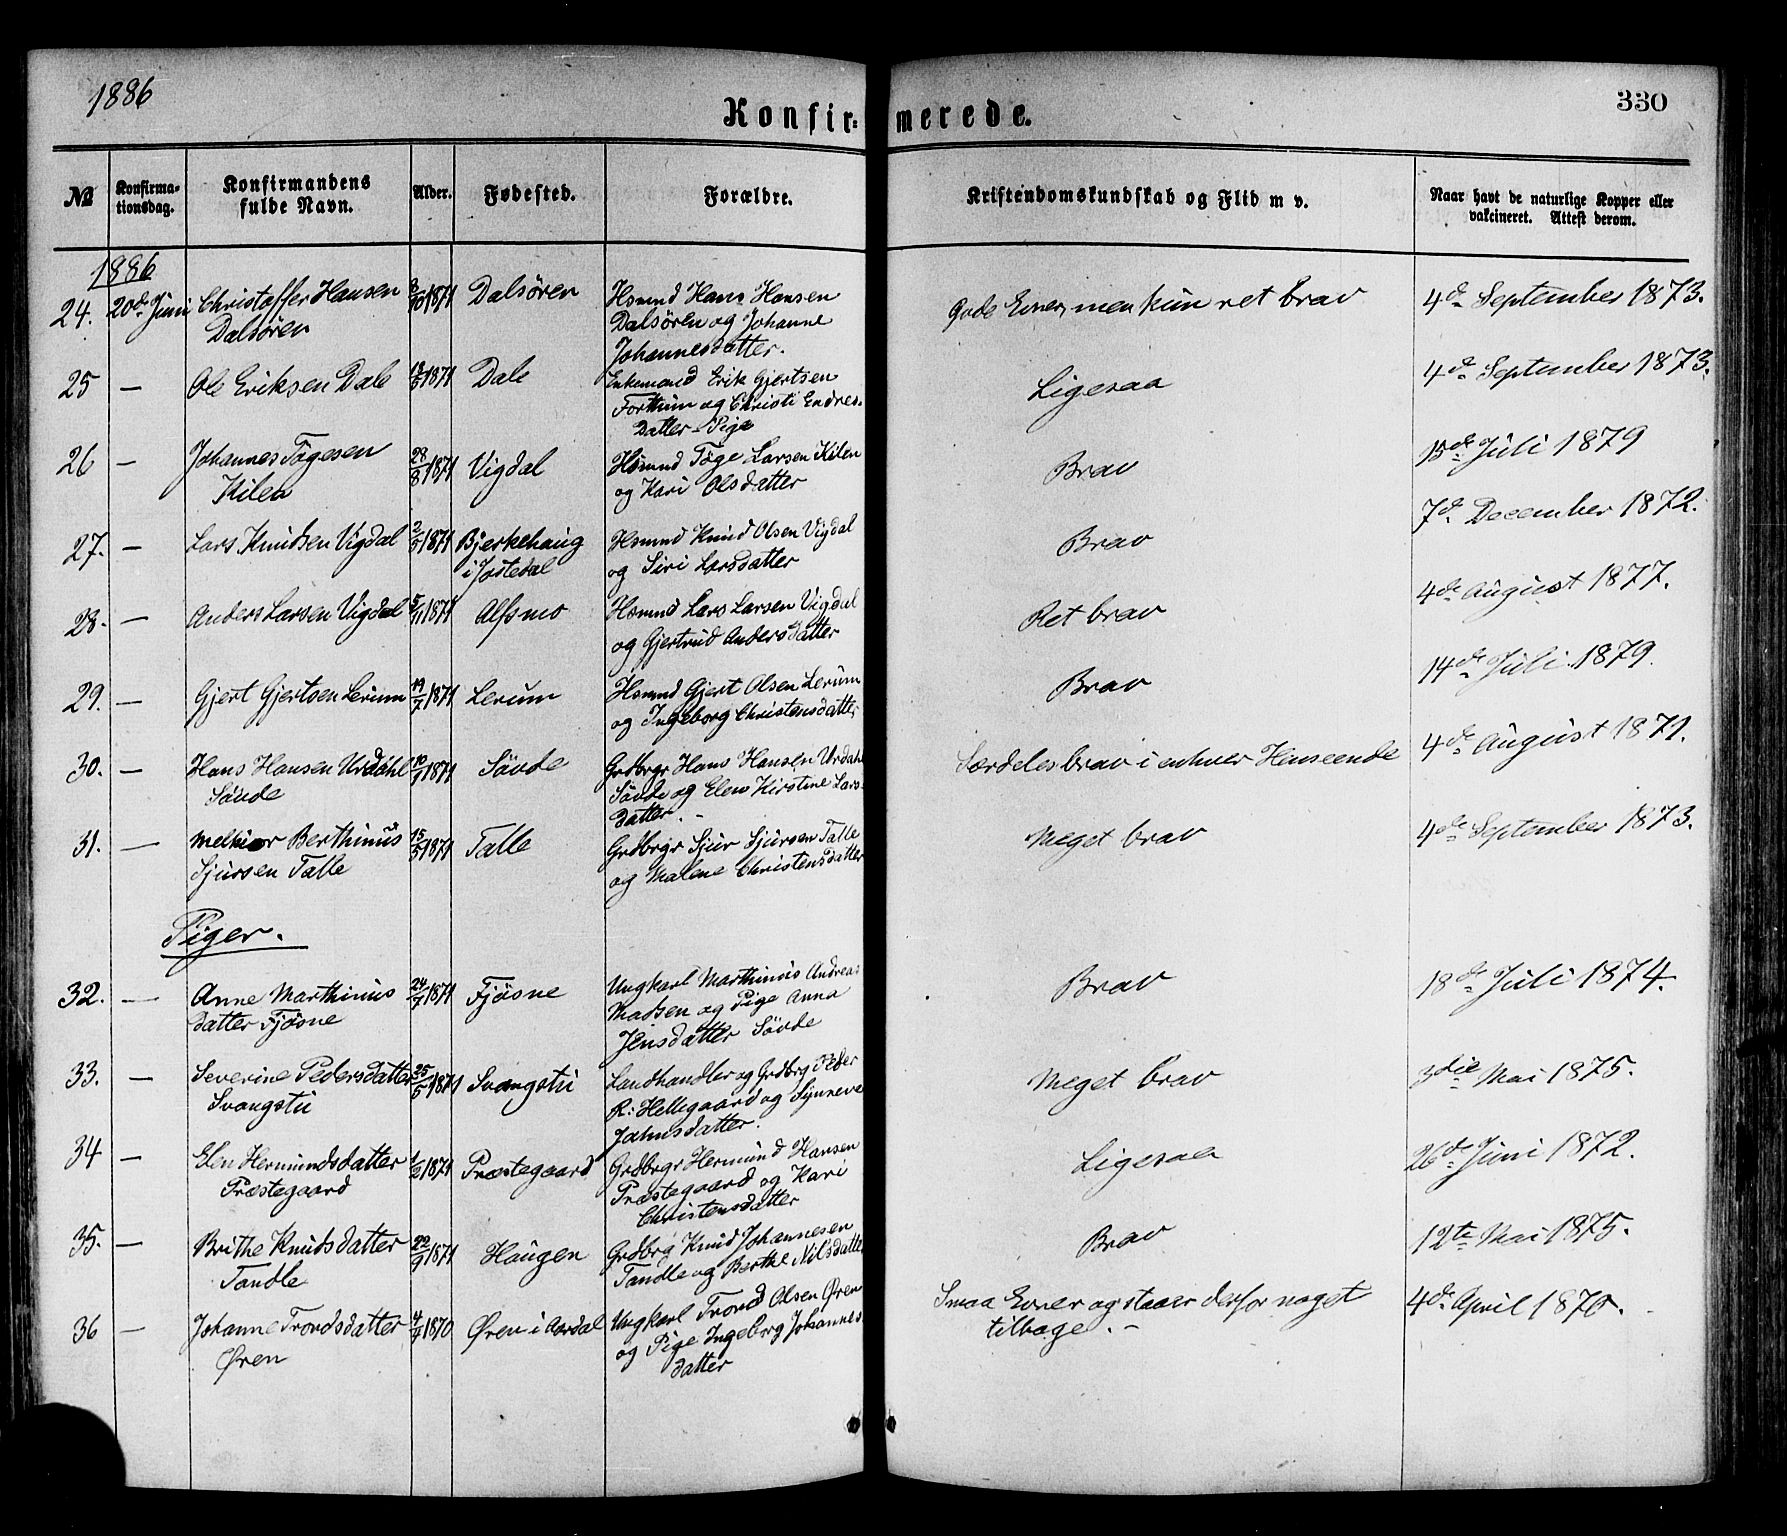 1886
330
Konfir= merede.
№
Konfirma-
tionsdag.
Konfirmandens
fulde Navn.
Alder.
Fødested.
Forældre.
Kristendomskundskab og Flid m v.
Naar havt de naturlige Kopper eller
vakcineret. Attest derom.
1886
24. 20de Juni Christoffer Hansen 1871 Dalsören Hsmnd Hans Hansen Gode Evner, men kun ret brav 4de September 1873.
Dalsören Dalsören og Johanne
Johannesdatter.
25 — Ole Eriksen Dale 1871 Dale Enkemand Erik Gjertsen Ligesaa 4de September 1873.
Forthun og Christi Endres-
datter - Pige
26 — Johannes Tögesen 28/8 1871 Vigdal Hsmnd Töge Larsen Kilen Brav 15de Juli 1879
Kilen og Kari Olsdatter
27. — Lars Knudsen Vigdal 1871 Bjerkehaug Hsmnd Knud Olsen Vigdal Brav 7de December 1872.
i Jostedal og Siri Larsdatter
28. — Anders Larsen Vigdal 1871 Alsmo Hsmnd Lars Larsen Vigdal Ret brav 4de August 1877.
og Gjertrud Andersdatter
29. — Gjert Gjertsen Lerum 19/7 1871 Lerum Hsmnd Gjert Olsen Lerum Brav 14de Juli 1879.
og Ingeborg Christensdatter
30. — Hans Hansen Urdahl 1871 Sövde Grdbrgr Hans Hansen Urdahl Særdeles brav i enhver Henseende 4de August 1871.
Sövde Sövde og Elen Kirstine Lars-
datter. -
31. — Melkior Berthinus 15/5 1871 Talle Grdbrgr Sjur Sjursen Talle Meget brav 4de September 1873.
Sjursen Talle og Malene Christensdatter
Piger.
32. — Anne Marthinus 1871 Fjösne Ungkarl Marthinus Andreas Brav 18de Juli 1874.
datter Fjösne Madsen og Pige Anna
Jensdatter Sövde
33. — Severine Pedersdatter 25/5 1871 Svangstu Landhandler og Grdbrg Peder Meget brav 3die Mai 1875.
Svangstu R. Hellegaard og Synneve
Jahnsdatter.
34 — Elen Hermundsdatter 1871 Præstegaard Grdbrgr Hermund Hansen Ligesaa 26de Juni 1872.
Præstegaard Præstegaard og Kari
Christensdatter
35. — Brithe Knudsdatter 22/9 1871 Haugen Grdbrg Knud Johannesen Brav 12te Mai 1875.
Tandle Tandle og Berthe Nilsdatter
36 — Johanne Trondsdatter 1870 Øren i Aardal Ungkarl Trond Olsen Øren Smaa Evner og staaer derfor noget 4de April 1870.
Øren og Pige Ingeborg Johannes tilbage. -
datter